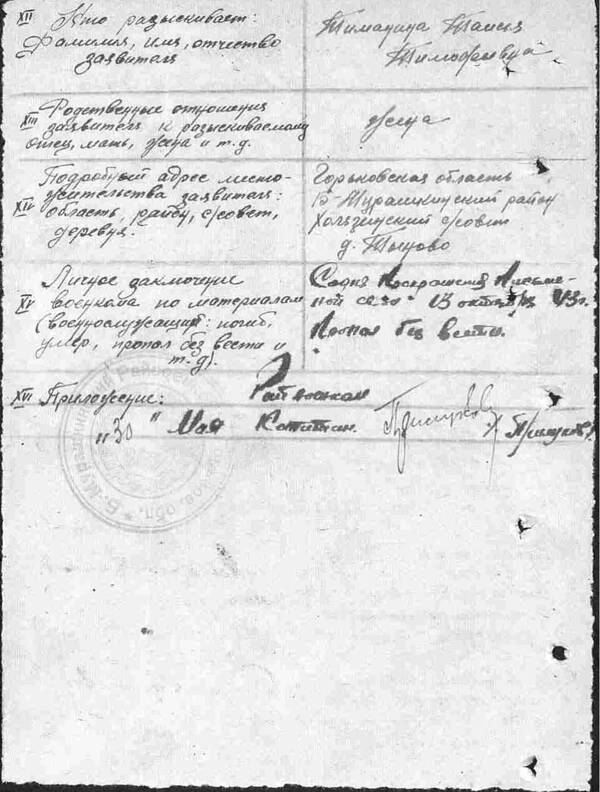 XII Кто разыскивает:
Фамилия, имя, отчество
заявителя
Таисья
Тимофеевна
XIII Родственные отношения
заявителя к разыскиваемому
отец, мать, жена и т.д.
жена
XIV Подробный адрес место-
жительства заявителя:
область, район, с/совет,
деревня.
Горьковская область
Б Мурашкинский район
с/совет
д.
XV Личное заключение
военкома по материалам
(военнослужащий: погиб,
умер, пропал без вести и
т.д).
Письмен-
ной связи 13 октября 43г.
Пропал без вести.
XVI Приложение:
Райвоенком
"30" Мая Капитан
Б. Мурашкинский обл.